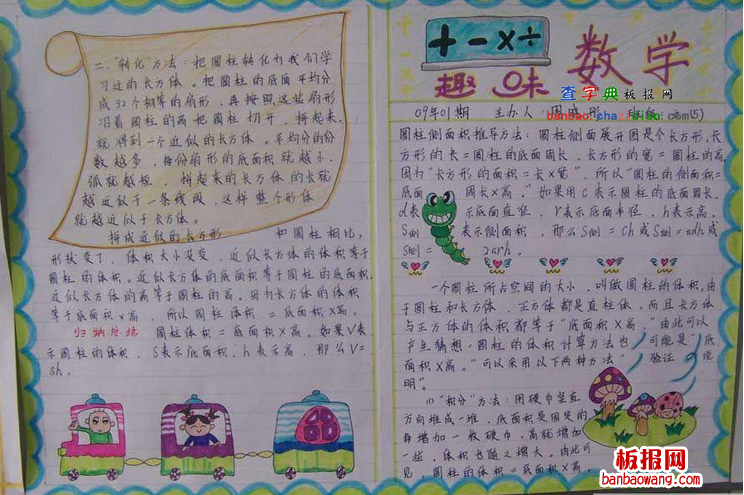 二、"转化"方法：把圆柱转化为我们学
习过的长方体。把圆柱的底面平均分
成32个相等的扇形，再按照这些扇形
沿着圆柱的高把圆柱切开，拼起来，
就得到一个近似的长方体。平均分的份
数越多，每份扇形的底面积就越小，
弧就越短，拼起来的长方体的长就
越近似于一条线段，这样整个形体
就越近似于长方体。
拼成近似的长方形 和圆柱相比，
形状变了，体积大小没变，近似长方体的体积等于
圆柱的体积。近似长方体的底面积等于圆柱的底面积，
近似长方体的高等于圆柱的高。因为长方体的体积
等于底面积×高，所以圆柱体积 = 底面积×高。
归纳总结 圆柱体积 = 底面积×高。如果V表
示圆柱的体积，S表示底面积，h表示高，那么V=
sh。
+-×÷
趣味 数学
查字典板报网
banbao.chazidian.com
09年01期 主办人
(5)
圆柱侧面积推导方法：圆柱侧面展开图是个长方形，长
方形的长=圆柱的底面周长，长方形的宽=圆柱的高，
因为"长方形的面积=长×宽"，所以"圆柱的侧面积=
底面 周长×高。"如果用C表示圆柱的底面周长，
d表 示底面直径，r表示底面半径，h表示高。
S侧 表示侧面积，那么S侧=Ch或S侧=πdh或
S侧= 2πrh。
一个圆柱所占空间的大小，叫做圆柱的体积。由
于圆柱和长方体、正方体都是直柱体，而且长方体
与正方体的体积都等于"底面积×高。"由此可以
产生猜想：圆柱的体积计算方法也 可能是"底
面积×高。"可以采用以下两种方法 验证 说
明"。
(1)"积分"方法：用硬币竖直
方向堆成一堆，底面积是固定的
每增加一枚硬币，高就增加
一些，体积也随之增大。由此可
见，圆柱的体积=底面积×高。
板报网
banbaowang.com